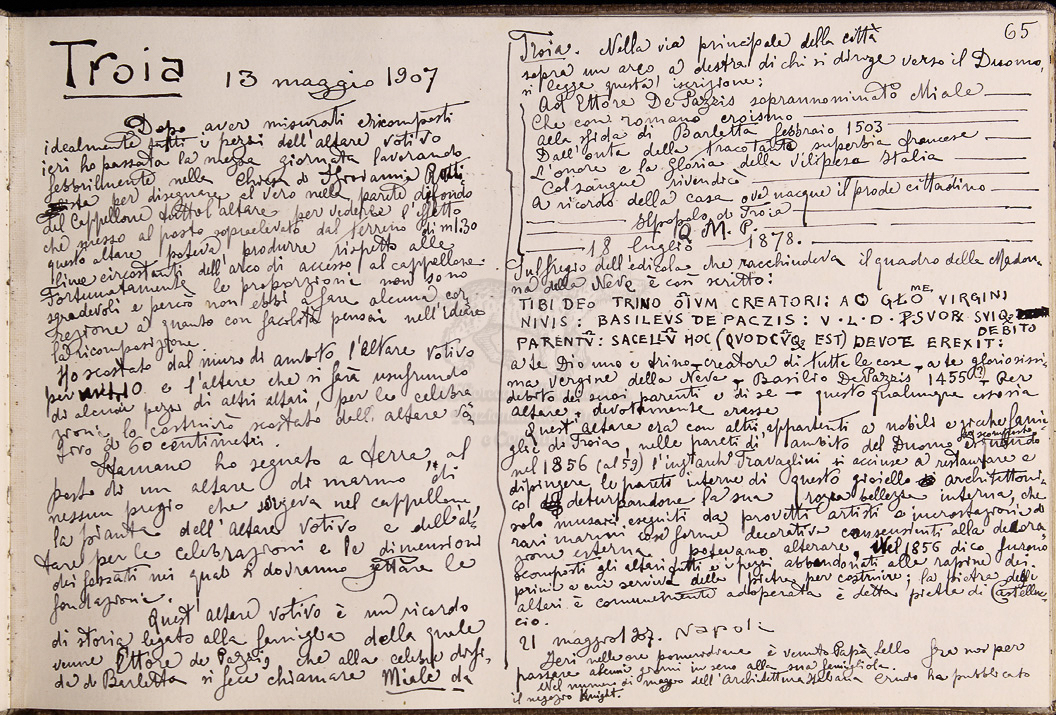 Troia
13 maggio 1907
Dopo aver misurati e ricomposti
idealmente tutti i pezzi dell'altare votivo
ieri ho passata la mezza giornata lavorando
febbrilmente nella Chiesa di Giovanni
per disegnare al vero nella parete di fondo
del Cappellone tutto l'altare per vederne l'effetto
che messo al posto sopraelevato dal terreno di m 1.30
questo altare poteva produrre rispetto alle
linee circostanti dell'arco di accesso al cappellone
Fortunatamente le proporzioni non sono
sgradevoli e perciò non ebbi a fare alcuna cor-
rezione a quanto con facoltà pensai nell'ideare
la ricomposizione.
Ho scostato dal muro di ambito l'Altare votivo
per e l'altare che si farà usufruendo
di alcuni pezzi di altri altari, per le celebra
zioni lo costruirò scostato dall'altare vo-
tivo di 60 centimetri.
Stamane ho segnato a terra, al
posto di un altare di marmo di
nessun pregio che sorgeva nel cappellone
la pianta dell'Altare votivo e dell'al-
tare per le celebrazioni e le dimensioni
dei fossati nei quali si dovranno gettare le
fondazioni.
Quest'altare votivo è un ricordo
di storia legato alla famiglia della quale
venne Ettore de Pazzis, che alla celebre disfi-
da di Barletta si fece chiamare Miale da
65
Troia. Nella via principale della città
sopra un arco a destra di chi si dirige verso il Duomo,
si legge questa iscrizione:
Ad Ettore De Pazzis soprannominato Miale
Che con romano eroismo
alla sfida di Barletta febbraio 1503
Dall'onta della tracotante superbia francese
L'onore e la gloria della vilipesa Italia
Col sangue rivendicò
A ricordo della casa ove nacque il prode cittadino
Il popolo di Troia
Q. M. P.
18 luglio 1878.
Sul fregio dell'edicola che racchiudeva il quadro della Madon-
na della Neve è così scritto:
TIBI DEO TRINO OIVM CREATORI: AC GLO ME, VIRGINI
NIVIS: BASILEVS DE PACZIS: V. L. D. P SVOR SVIQ
DEBITO
PARENTV: SACELLV HOC (QVODCVQ EST) DEVOTE EREXIT:
a te Dio uno e trino creatore di tutte le cose, a te gloriosissi-
ma vergine della Neve - Basilio De Pazzis 1455(?) - Per
debito dei suoi parenti e di se - questo qualunque essosia
altare, devotamente eresse
Quest'altare era con altri, appartenenti a nobili e ricche fami-
glie di Troia, nelle pareti di ambito del Duomo fu scomposto quando
nel 1856 (al 59) l'ingegnere Travaglini si accinse a restaurare e
dipingere le pareti interne di questo gioiello architettoni-
co deturpandone la sua rozza bellezza interna, che
solo musaici eseguiti da provetti artisti e incrostazioni di
rari marmi con forme decorative consenzienti alla decora
zione esterna potevano alterare. Nel 1856 dico furono
scomposti gli altari tutti e i pezzi abbandonati alle rapine dei
primi a cui serviva della pietra per costruire; la pietra degli
altari è comunemente adoperata è detta pietra di Castelluc-
cio.
21 maggio 1907. Napoli
Ieri nelle ore pomeridiane è venuto Papà Lello fra noi per
passare alcuni giorni in seno alla sua famigliola.
Nel numero di maggio dell'Architettura Italiana Crudo ha pubblicato
il negozio Knight.